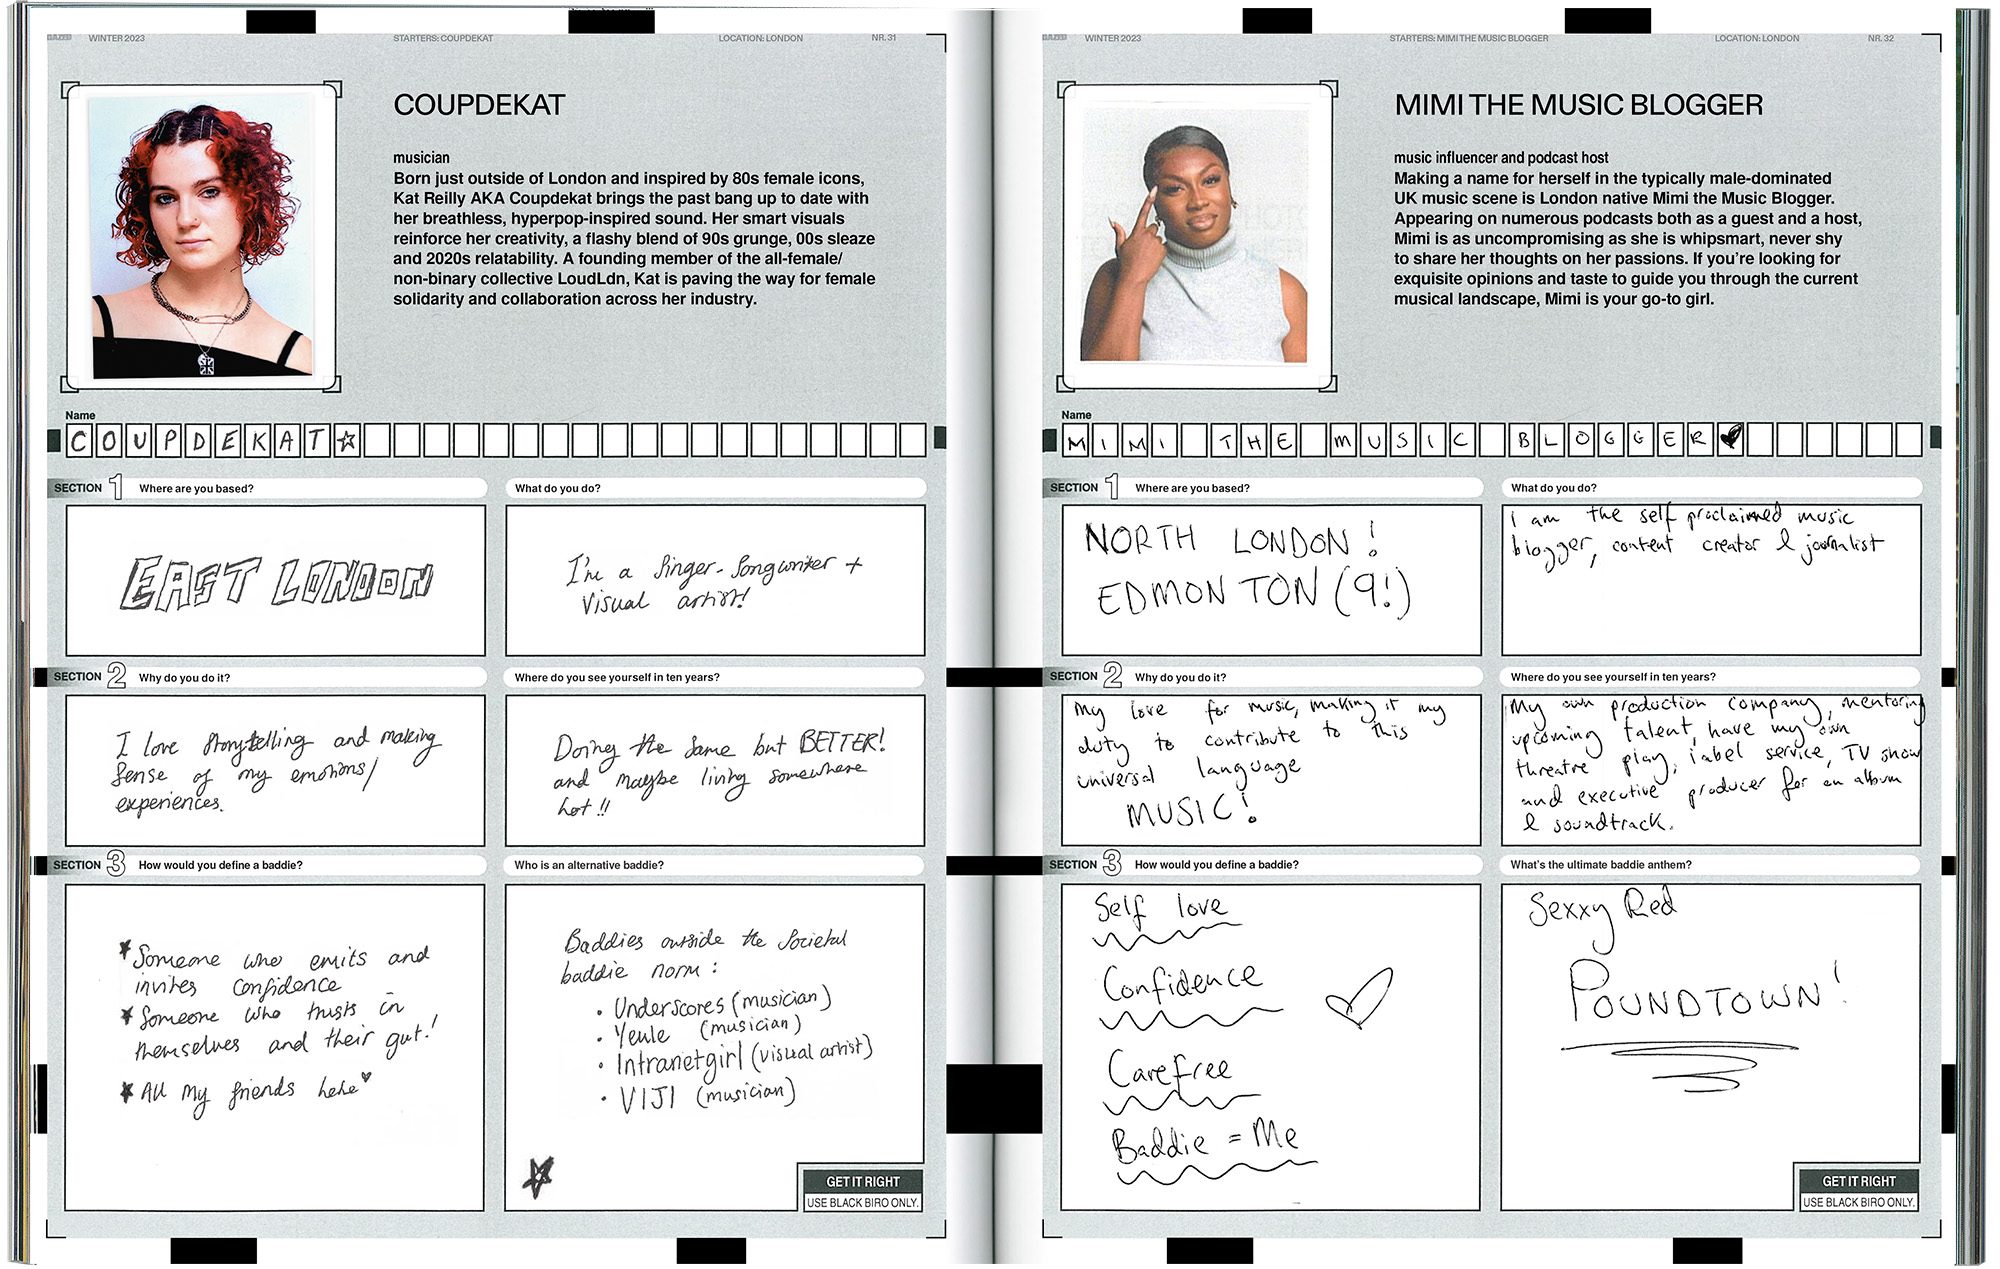 DAZED WINTER 2023 STARTERS: COUPDEKAT LOCATION: LONDON NR. 31
COUPDEKAT
musician
Born just outside of London and inspired by 80s female icons,
Kat Reilly AKA Coupdekat brings the past bang up to date with
her breathless, hyperpop-inspired sound. Her smart visuals
reinforce her creativity, a flashy blend of 90s grunge, 00s sleaze
and 2020s relatability. A founding member of the all-female/
non-binary collective LoudLdn, Kat is paving the way for female
solidarity and collaboration across her industry.
Name
COUPDEKAT☆
SECTION 1 Where are you based?
EAST LONDON
What do you do?
I'm a Singer-Songwriter +
Visual artist!
SECTION 2 Why do you do it?
I love storytelling and making
sense of my emotions/
experiences.
Where do you see yourself in ten years?
Doing the same but BETTER!
and maybe living somewhere
hot!!
SECTION 3 How would you define a baddie?
★Someone who emits and
invites confidence
★Someone who trusts in
themselves and their gut!
★All my friends hehe♥
Who is an alternative baddie?
Baddies outside the societal
baddie norm:
• Underscores (musician)
• Yeule (musician)
• Intranetgirl (visual artist)
• VIJI (musician)
GET IT RIGHT
USE BLACK BIRO ONLY.
DAZED WINTER 2023 STARTERS: MIMI THE MUSIC BLOGGER LOCATION: LONDON NR. 32
MIMI THE MUSIC BLOGGER
music influencer and podcast host
Making a name for herself in the typically male-dominated
UK music scene is London native Mimi the Music Blogger.
Appearing on numerous podcasts both as a guest and a host,
Mimi is as uncompromising as she is whipsmart, never shy
to share her thoughts on her passions. If you're looking for
exquisite opinions and taste to guide you through the current
musical landscape, Mimi is your go-to girl.
Name
MIMI THE MUSIC BLOGGER♥
SECTION 1 Where are you based?
NORTH LONDON!
EDMONTON (9!)
What do you do?
I am the self proclaimed music
blogger, content creator & journalist
SECTION 2 Why do you do it?
My love for music, making it my
duty to contribute to this
universal language
MUSIC!
Where do you see yourself in ten years?
My own production company, mentoring
upcoming talent, have my own
threatre play, label service, TV show
and executive producer for an album
& soundtrack.
SECTION 3 How would you define a baddie?
Self love
Confidence
Carefree
Baddie = Me
What's the ultimate baddie anthem?
Sexxy Red
POUNDTOWN!
GET IT RIGHT
USE BLACK BIRO ONLY.